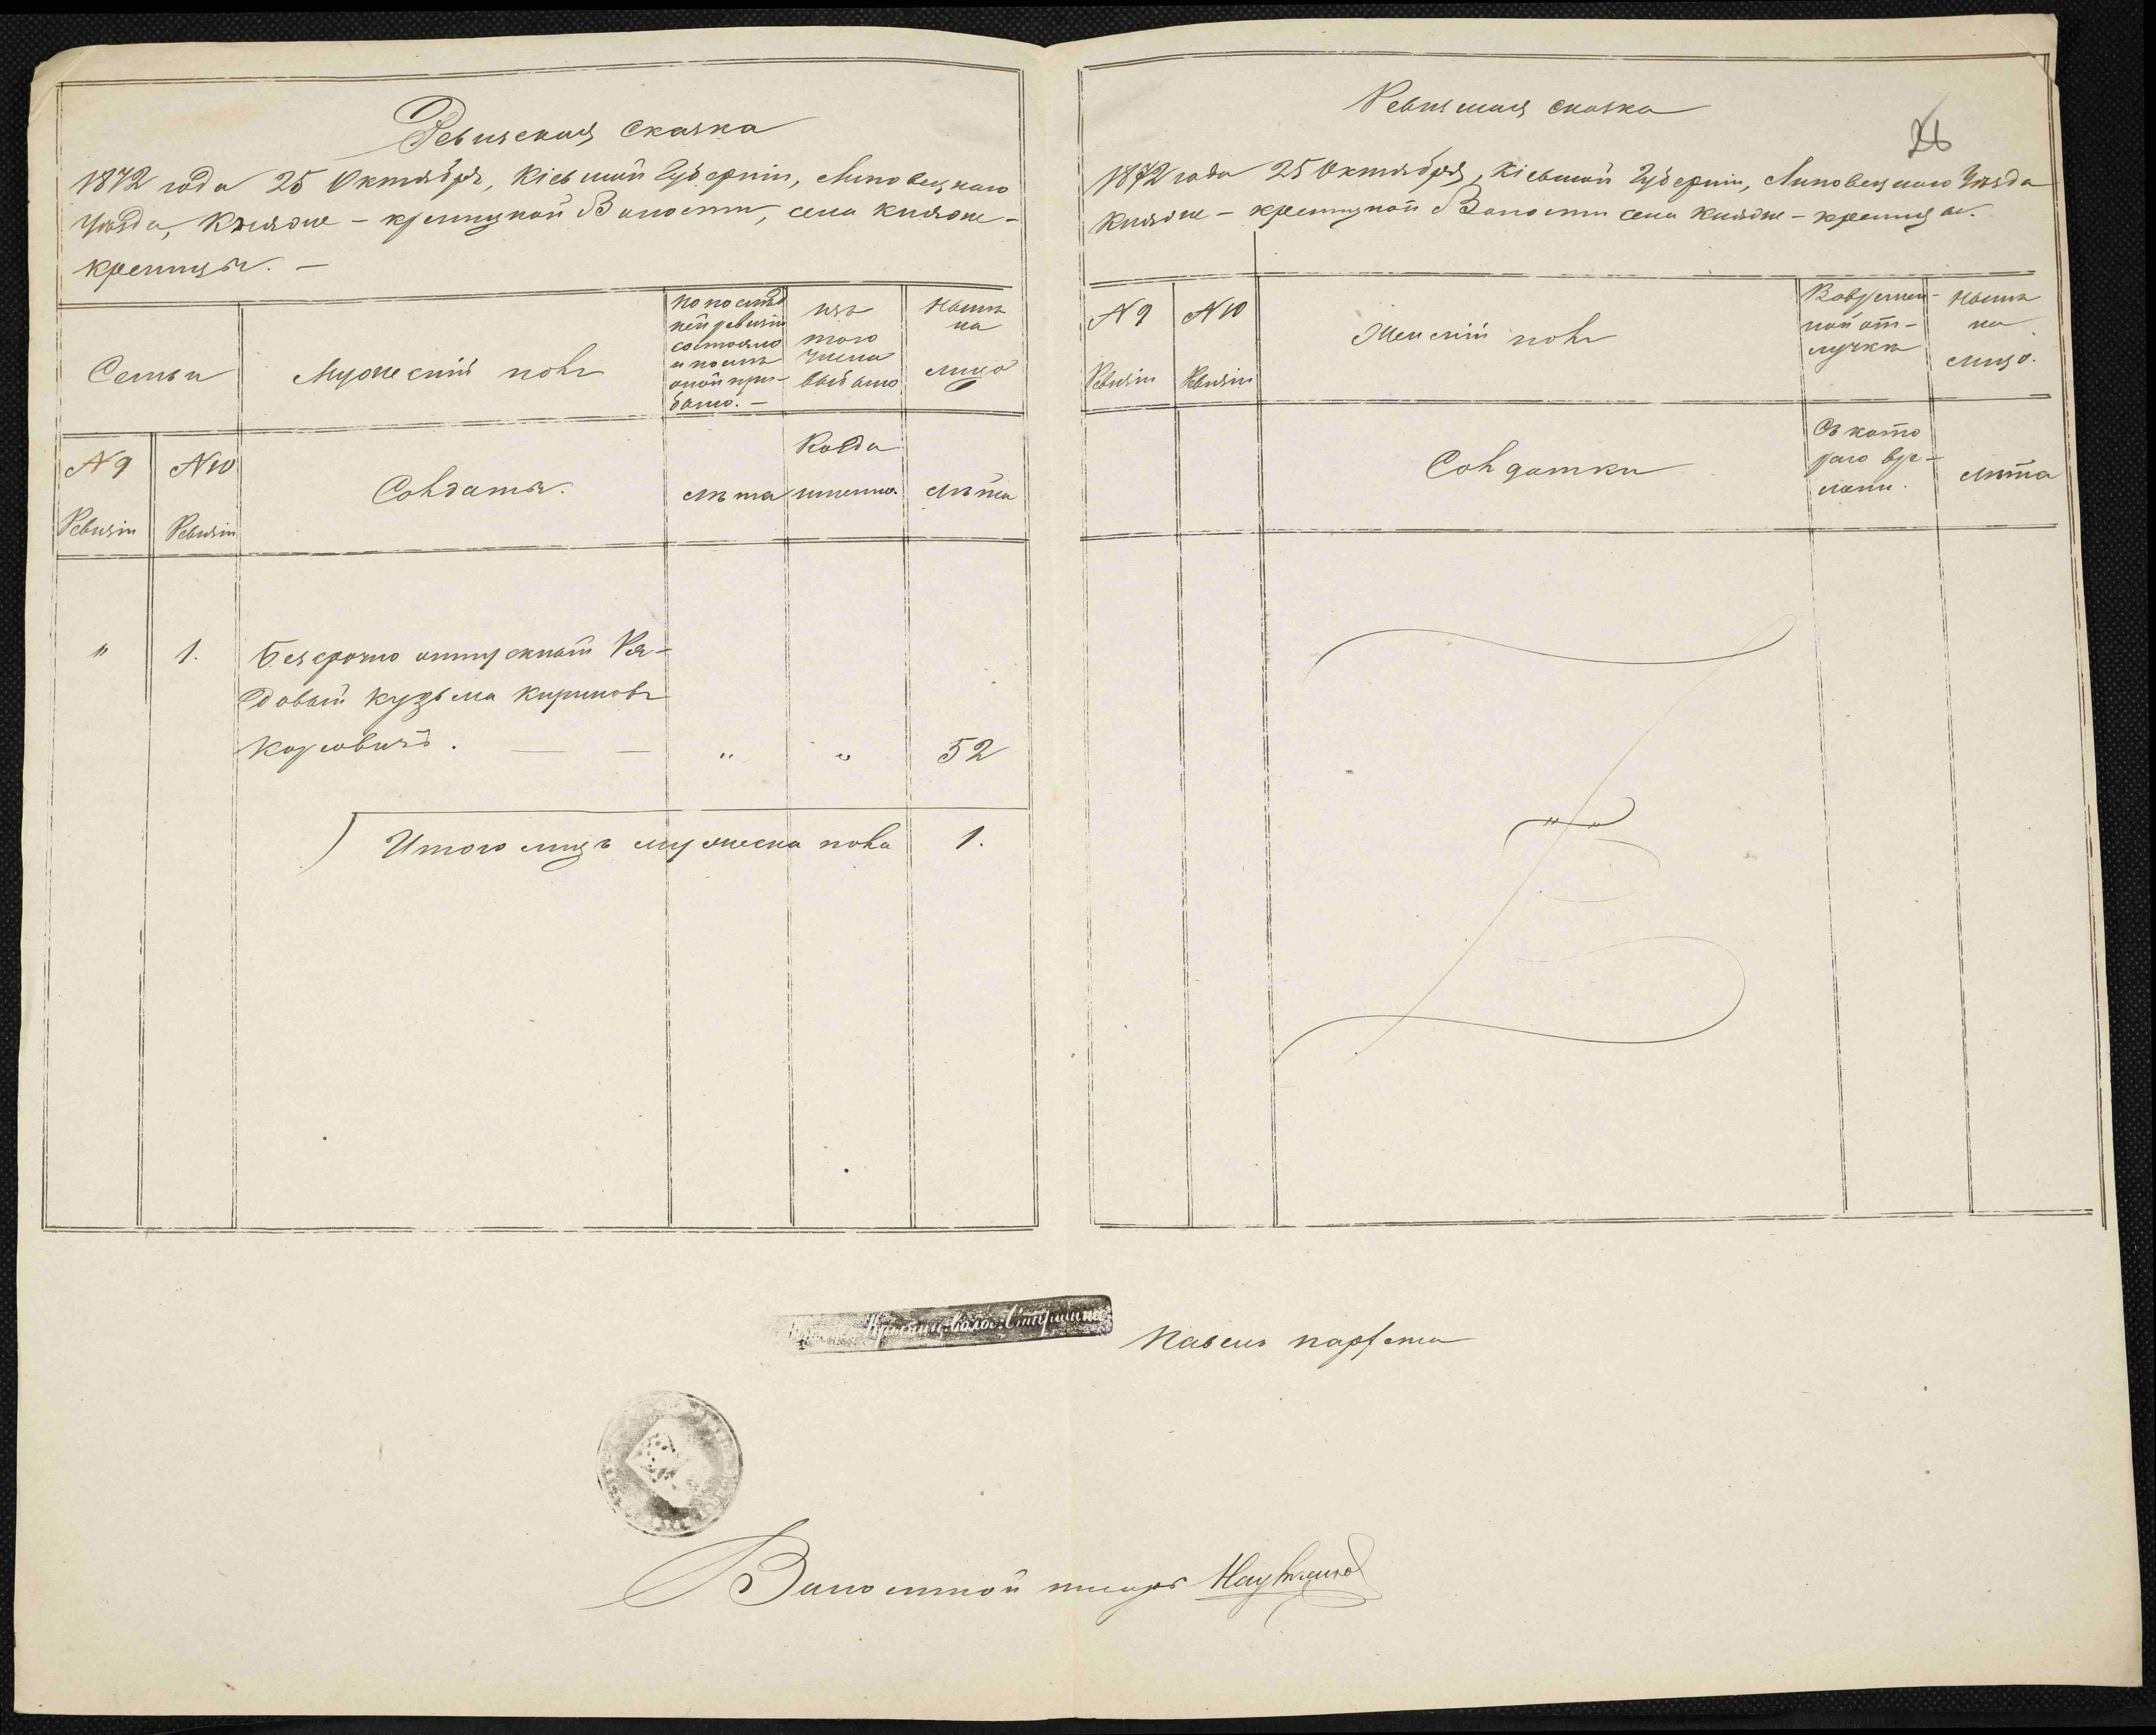 Ревизская сказка
1872 года 25 Октября, Кіевской Губерніи, Липовецкаго
Уѣзда, Княже-криницкой Волости, села Княже-
криницы. —
Семьи
Мужескій полъ
По послѣд
ней ревизіи
состояло
и послѣ
оной при-
было. —
изъ
того
числа
выбыло
Нынѣ
на
лицо
№ 9
Ревизіи
№ 10
Ревизіи
Солдаты.
лѣта
Когда
именно.
лѣта
" 1. Безсрочно отпускной Ря-
довый Кузьма Кириловъ
. — — " " 52
Итого лицъ мужеска пола 1.
Ревизская сказка
26
1872 года 25 Октября, Кіевской Губерніи, Липовецкаго Уѣзда
Княже-криницкой Волости села Княже-криницы.
№ 9
Ревизіи
№ 10
Ревизіи
Женскій полъ
Во времен-
ной от-
лучкѣ
Нынѣ
на
лицо.
Солдатки
Съ кото
раго вре-
мени.
лѣта
Криниц. Волос. Старшина
Павелъ
Волостной писарь